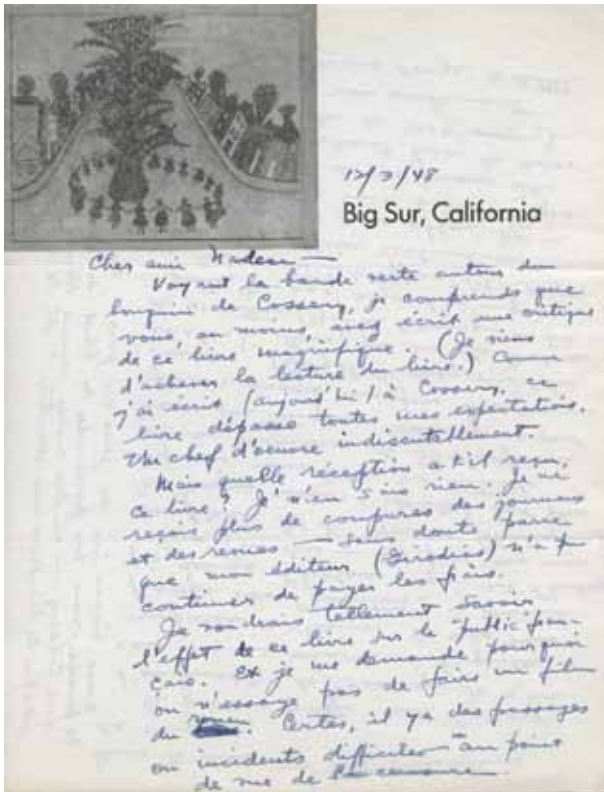 12/3/48
Big Sur, California
Cher ami Nadeau —
Voyant la bande verte autour du
bouquin de Cossery, je comprends que
vous, au moins, avez écrit une critique
de ce livre magnifique. (Je viens
d'achever la lecture du livre.) Comme
j'ai écrit (aujourd'hui) à Cossery, ce
livre dépasse toutes mes expectations.
Un chef d'oeuvre indiscutablement.
Mais quelle réception a t'il reçu,
ce livre? Je n'en sais rien. Je ne
reçois plus de coupures des journaux
et des revues — sans doute parce
que mon éditeur (Girodias) n'a pu
continuer de payer les frais.
Je voudrais tellement savoir
l'effet de ce livre sur le public fran-
çais. Et je me demande pourquoi
on n'essaye pas de faire un film
du. Certes, il y a des passages
ou incidents difficiles au point
de vue de la censure.